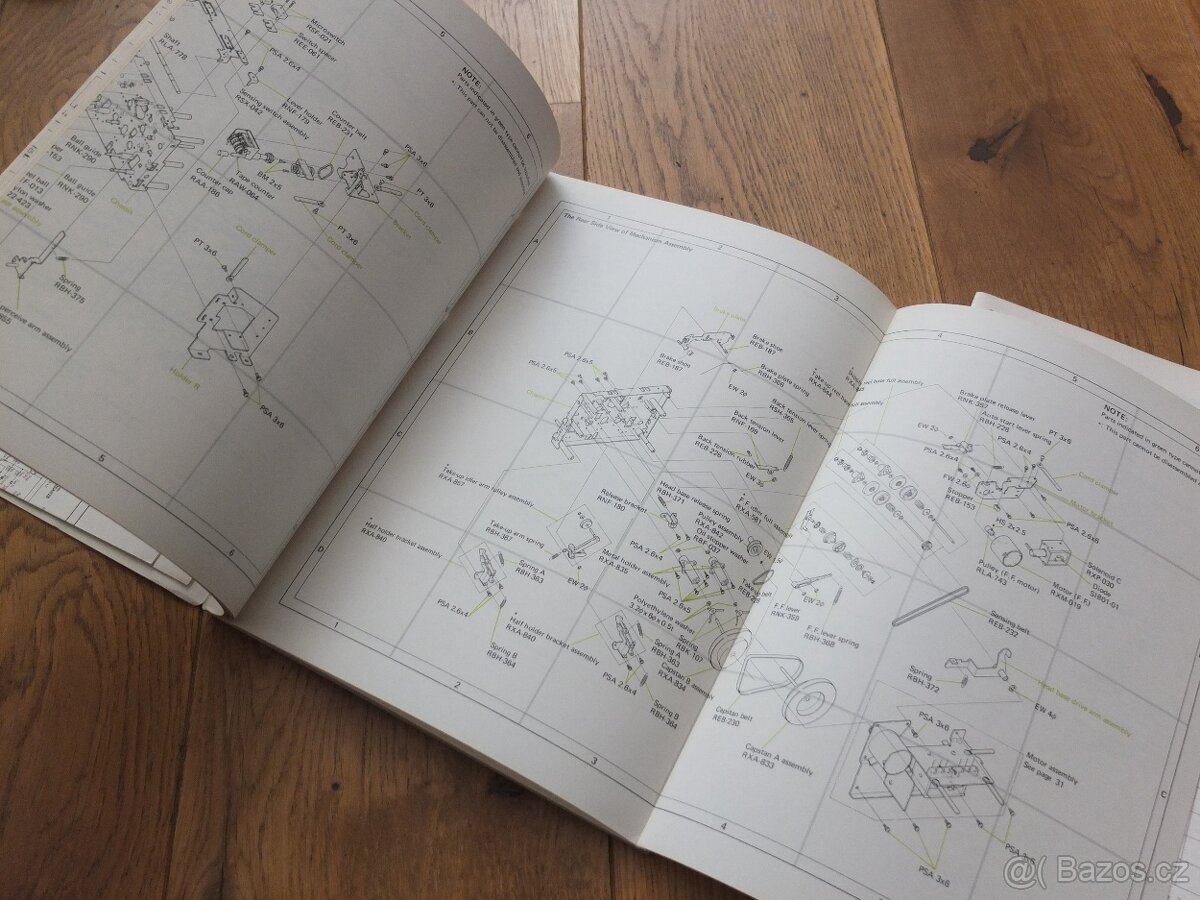 5
Microswitch
RSF-021
Switch spacer
REE-061
PSA 2.6x4
Shaft
RLA-778
NOTE:
Parts indicated in green type cannot be
This part can not be disassembled
Lever holder
RNF-179
Sensing switch assembly
RSX-042
Counter belt
REB-231
6
PSA 3x6
BM 2x5
Tape counter
RAW-064
Counter cap
RAA-186
PT 3x8
Cord clamper
Bracket
PT 3x6
Cord clamper
Ball guide
RNK-290
Ball guide
RNK-290
Chassis
Cord clamper
PT 3x6
Spring
RBH-375
perceive arm assembly
Holder R
PSA 3x8
5
6
The Rear Side View of Mechanism Assembly
1
2
3
A
B
C
D
Brake plate
Brake shoe
REB-187
Brake shoe
REB-187
PSA 2.6x5
PSA 2.6x5
Brake plate spring
RBH-369
EW 20
Back tension lever spring
RBH-365
Back tension lever
RNF-169
Back tension rubber
REB-226
EW 35
Take-up idler arm pulley assembly
RXA-857
Release bracket
RNF-180
Head base release spring
RBH-371
Pulley assembly
RXA-842
Oil stopper washer
RBF-037
Half holder bracket assembly
RXA-840
Take-up arm spring
RBH-367
PSA 2.6x4
Metal holder assembly
RXA-835
Spring A
RBH-363
EW 20
PSA 2.6x5
PSA 2.6x4
Polyethylene washer
3.2φx6φx0.5t
Half holder bracket assembly
RXA-840
Spring B
RBH-364
RBK-107
Spring A
RBH-363
Capstan B assembly
RXA-834
PSA 2.6x4
Spring B
RBH-364
1
2
3
4
5
6
NOTE:
Parts indicated in green type cannot
This part cannot be disassembled
Brake plate release lever
RNK-357
Auto start lever spring
RBH-228
PT 3x6
EW 20
PSA 2.6x4
PSA 2.6x4
Cord clamper
FW 2.6φ
Stopper
REB-153
Motor bracket
HS 2x2.5
PSA 2.6x6
Pulley (F.F. motor)
RLA-743
Solenoid C
RXP-030
Diode
SIB01-01
Motor (F.F.)
RXM-019
EW 20
F.F. lever
RNK-358
F.F. lever spring
RBH-368
Sensing belt
REB-232
Spring
RBH-372
Head base drive arm assembly
EW 4φ
Capstan belt
REB-230
Capstan A assembly
RXA-833
PSA 3x6
Motor assembly
See page 31
C
PSA 3x6
PSA 3x6
4
@( Bazos.cz